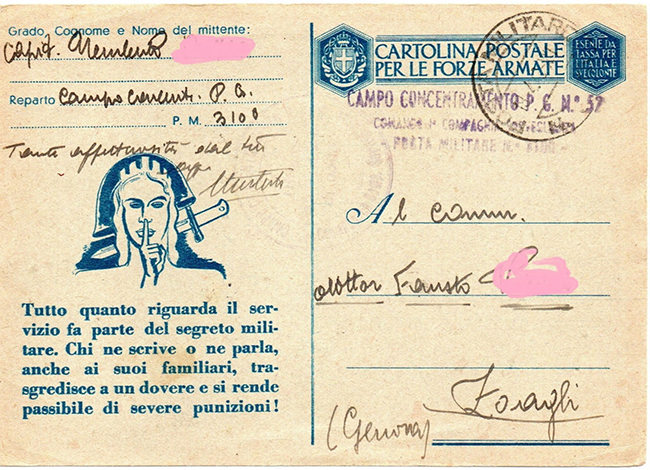 Grado, Cognome e Nome del mittente:
Capit.
Reparto Campo concentr. P. G.
P. M. 3100
Tante affettuosità dal tuo
Tutto quanto riguarda il ser-
vizio fa parte del segreto mili-
tare. Chi ne scrive o ne parla,
anche ai suoi familiari, tra-
sgredisce a un dovere e si rende
passibile di severe punizioni!
CARTOLINA POSTALE
PER LE FORZE ARMATE
ESENTE DA
TASSA PER
L'ITALIA E
SVE COLONIE
MILITARE
CAMPO CONCENTRAMENTO P. G. N.° 57
COMANDO COMPAGNIA
POSTA MILITARE N. 3100
Al comm.
dottor Fausto
Zoagli
(Genova)